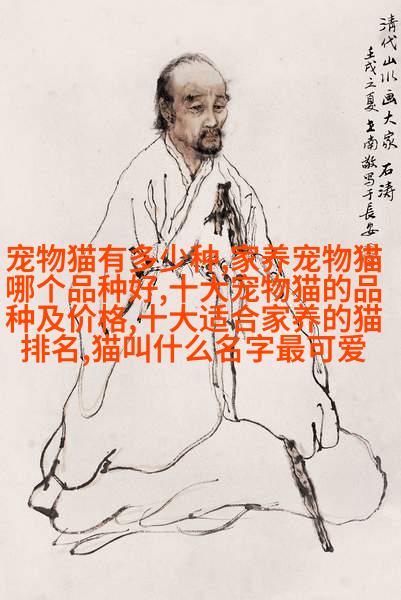 清代山水画大家 石涛
壬戌之夏 王南敬写于長安
宠物猫有多少种,家养宠物猫
哪个品种好,十大宠物猫的品
种及价格,十大适合家养的猫
排名,猫叫什么名字最可爱